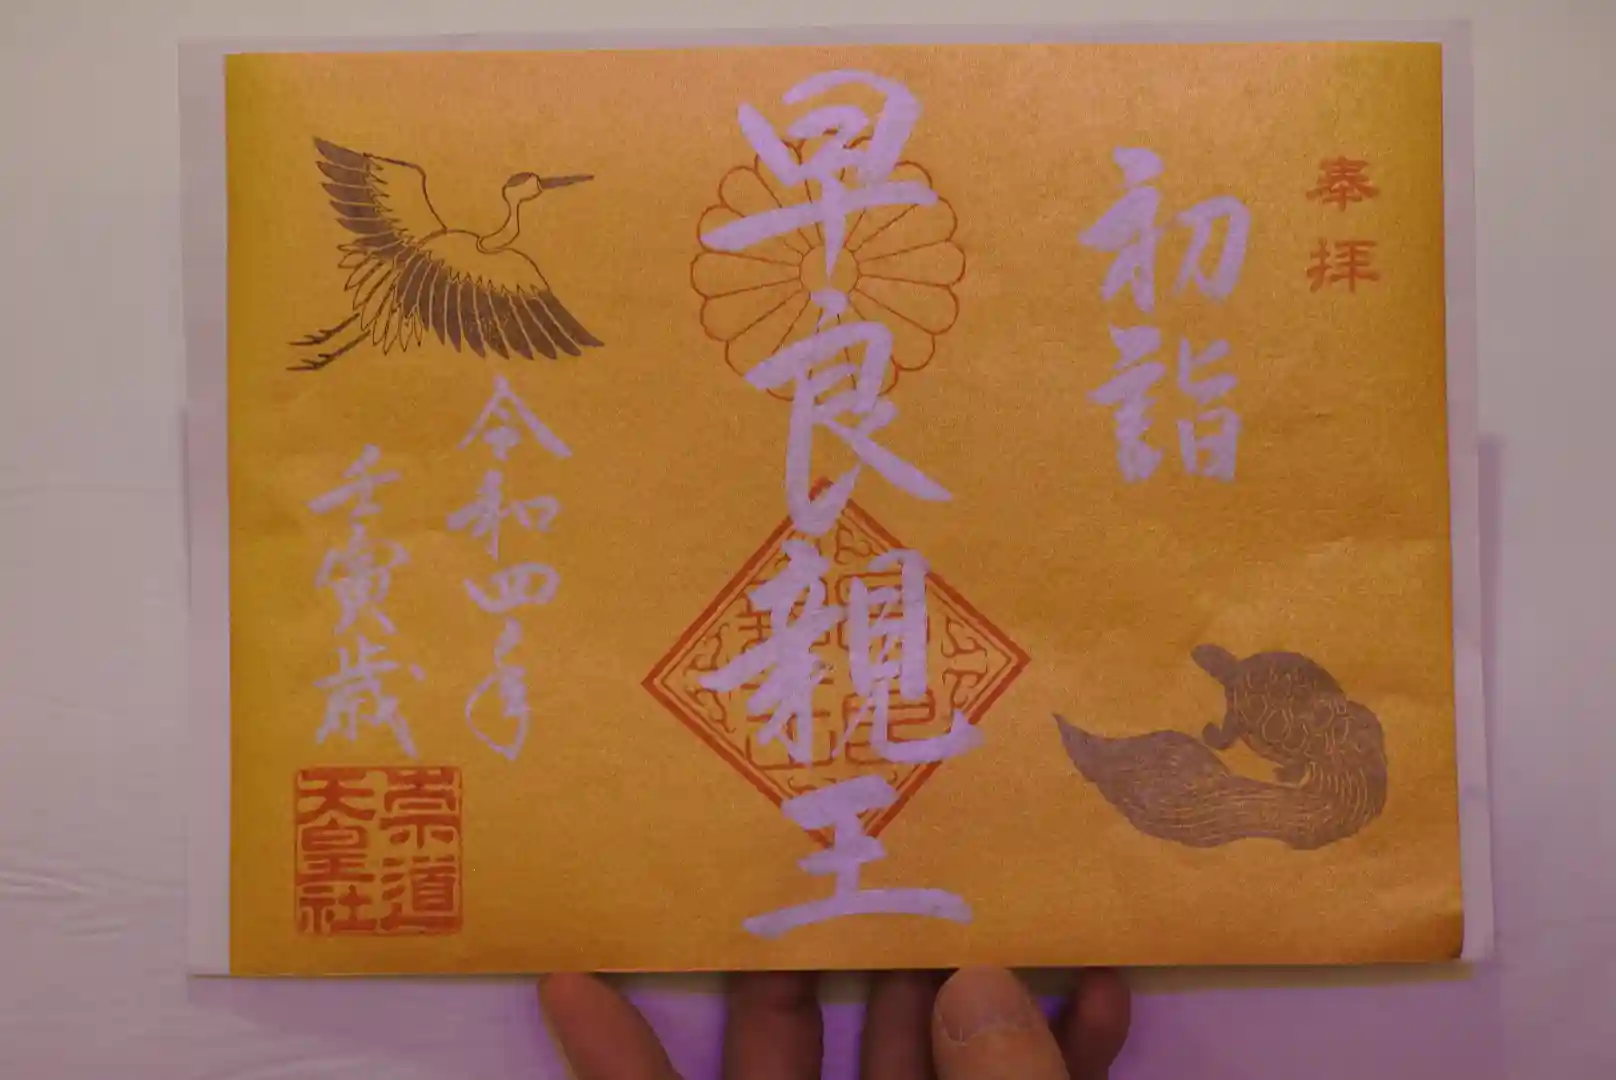 奉拝
初詣
早良親王
令和四年
壬寅歳
崇道
天皇社